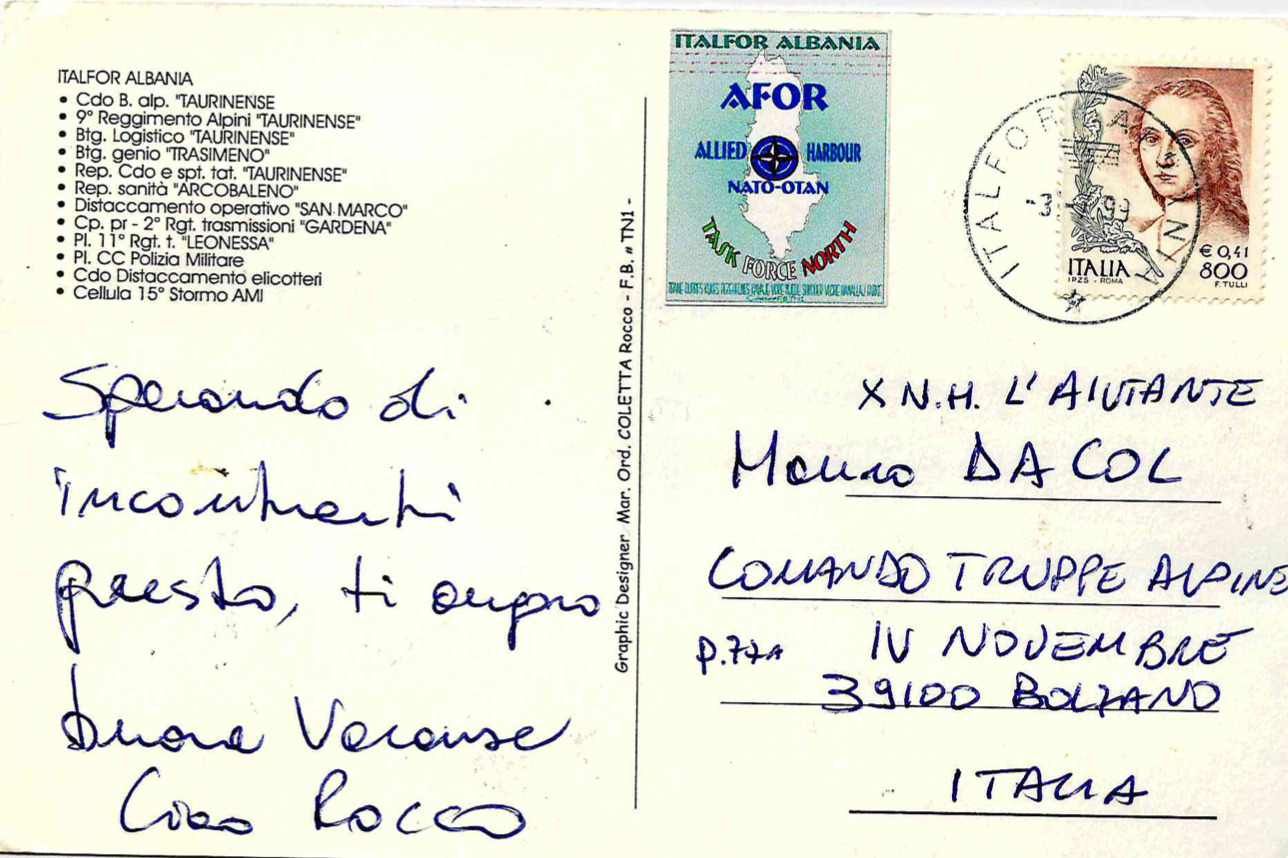 ITALFOR ALBANIA
• Cdo B. alp. "TAURINENSE
• 9° Reggimento Alpini "TAURINENSE"
• Btg. Logistico "TAURINENSE"
• Btg. genio "TRASIMENO"
• Rep. Cdo e spt. tat. "TAURINENSE"
• Rep. sanità "ARCOBALENO"
• Distaccamento operativo "SAN MARCO"
• Cp. pr - 2° Rgt. trasmissioni "GARDENA"
• Pl. 11° Rgt. t. "LEONESSA"
• Pl. CC Polizia Militare
• Cdo Distaccamento elicotteri
• Cellula 15° Stormo AMI
Sperando di
incontrarti
presto, ti auguro
buone Vacanze
Ciao Rocco
Graphic Designer Mar. Ord. COLETTA Rocco - F.B. # TN1 -
ITALFOR ALBANIA
AFOR
ALLIED HARBOUR
NATO-OTAN
TASK FORCE NORTH
ITALFOR ALBANIA
-3 99
€ 0,41
ITALIA 800
I.P.Z.S. - ROMA F. TULLI
X N.H. L'AIUTANTE
Mauro DA COL
COMANDO TRUPPE ALPINE
P.ZZA IV NOVEMBRE
39100 BOLZANO
ITALIA